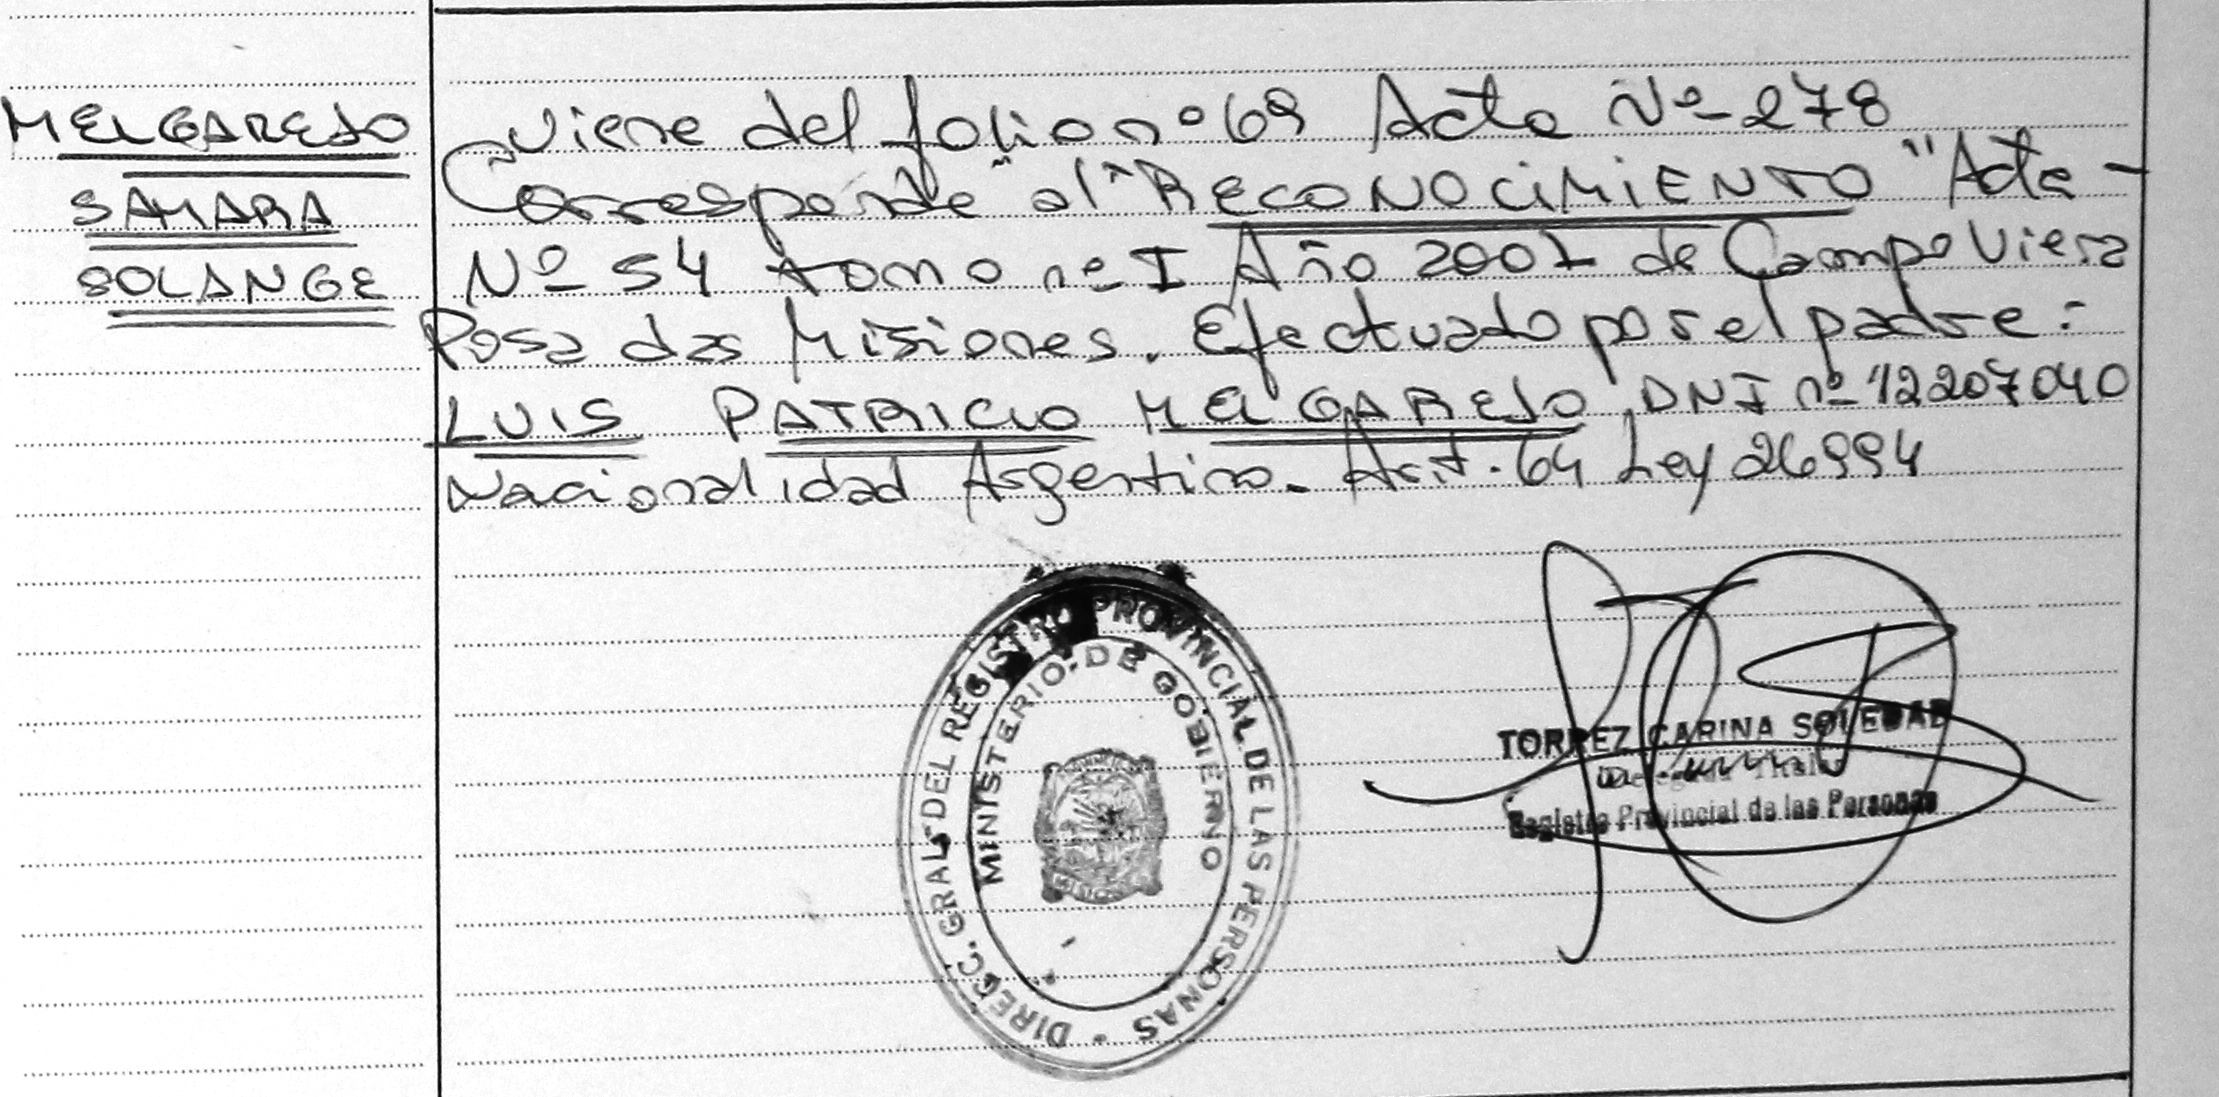 MELGAREJO
SAMARA
SOLANGE
Viene del folio nº 69 Acta Nº 278
Corresponde al "RECONOCIMIENTO" Acta -
Nº 54 tomo nº I Año 2007 de Campo Viera
Posadas Misiones. Efectuado por el padre:
LUIS PATRICIO MELGAREJO DNI nº 12207040
Nacionalidad Argentino. Art. 64 Ley 26994
DIRECC. GRAL. DEL REGISTRO PROVINCIAL DE LAS PERSONAS
MINISTERIO DE GOBIERNO
TORREZ CARINA SOLEDAD
Registro Provincial de las Personas